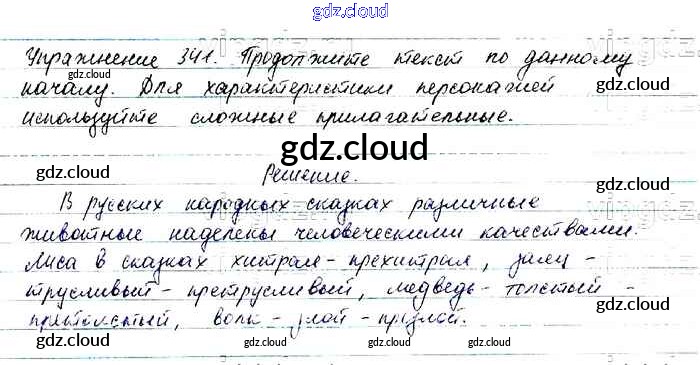 gdz.cloud
Упражнение 341. Продолжите текст по данному
началу. Для характеристики персонажей
используйте сложные прилагательные.
gdz.cloud
Решение.
В русских народных сказках различные
животные наделены человеческими качествами.
Лиса в сказках хитрая-прехитрая, заяц -
трусливый-претрусливый, медведь-толстый -
претолстый, волк-злой-презлой.
gdz.cloud gdz.cloud gdz.cloud